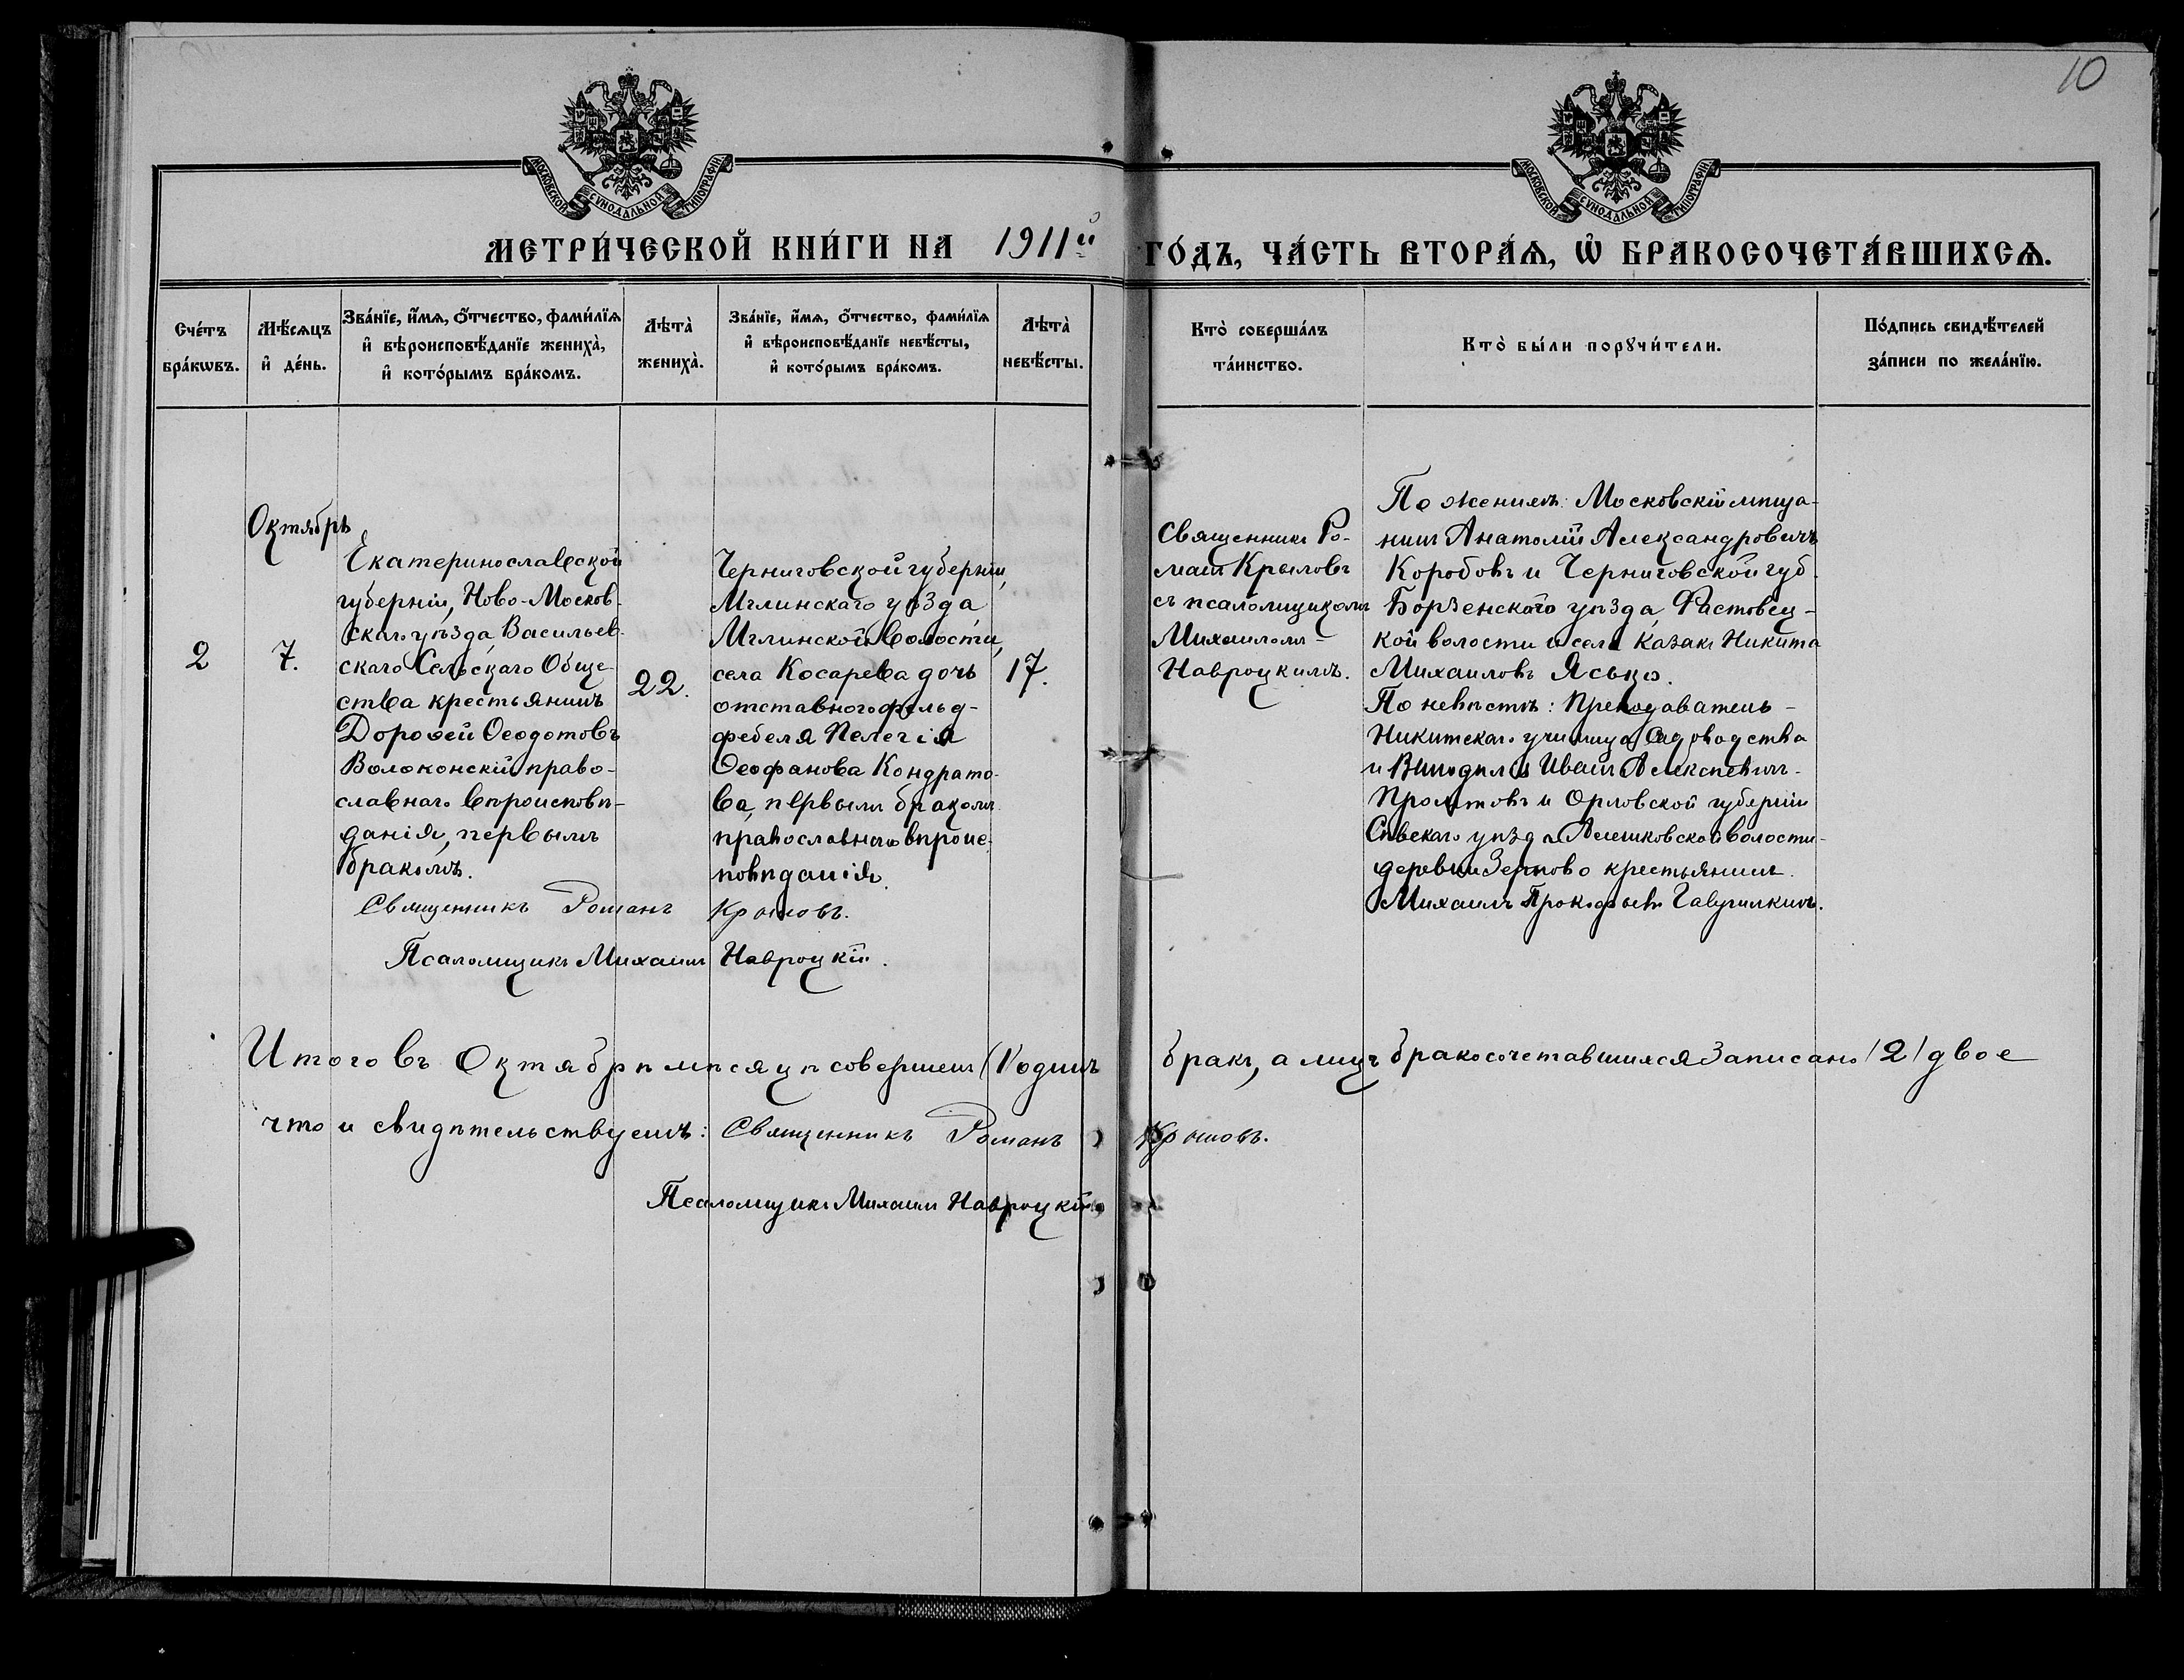 10
МОСКОВСКОЙ СѴНОДАЛЬНОЙ ТИПОГРАФІИ
МОСКОВСКОЙ СѴНОДАЛЬНОЙ ТИПОГРАФІИ
МЕТРИ́ЧЕСКОЙ КНИ́ГИ НА 1911й ГО́ДЪ, ЧА́СТЬ ВТОРА́Ѧ, Ѡ҆ БРАКОСОЧЕТА́ВШИХСѦ.
Сче́тъ
бра́кѡвъ.
Мѣ́сѧцъ
и҆ де́нь.
Зва́нїе, и҆́мѧ, о҆́тчество, фами́лїѧ
и҆ вѣроисповѣ́данїе жениха̀,
и҆ кото́рымъ бра́комъ.
Лѣта̀
жениха̀.
Зва́нїе, и҆́мѧ, о҆́тчество, фами́лїѧ
и҆ вѣроисповѣ́данїе невѣ́сты,
и҆ кото́рымъ бра́комъ.
Лѣта̀
невѣ́сты.
Кто̀ соверша́лъ
та́инство.
Кто̀ бы́ли порꙋчи́тели.
По́дпись свидѣ́телей
за́писи по жела́нїю.
2
Октябрь
7.
Екатеринославской
губерніи, Ново-Москов-
скаго уѣзда, Васильев-
скаго Сельскаго Обще-
ства крестьянинъ
Дороѳей Ѳеодотовъ
Волоконскій право-
славнаго вѣроисповѣ-
данія, первымъ
бракомъ.
22.
Черниговской губерніи,
Мглинскаго уѣзда
Мглинской волости,
села Косарева дочь
отставного фельд-
фебеля Пелагія
Ѳеофанова Кондрато-
ва, первымъ бракомъ
православнаго вѣроис-
повѣданія.
17.
Священникъ Ро-
манъ Крыловъ
съ псаломщикомъ
Михаиломъ
Навроцкимъ.
По женихѣ: Московскій мѣща-
нинъ Анатолій Александровичъ
Коробовъ и Черниговской губ.
Борзенскаго уѣзда, Фастовец-
кой волости и села казакъ Никита
Михаиловъ Ясько.
По невѣстѣ: Преподаватель
Никитскаго училища Садоводства
и Винодѣлія Иванъ Алексѣевичъ
и Орловской губерніи
Сѣвскаго уѣзда волости
деревни Зерново крестьянинъ
Михаилъ Прокофьевъ
Священникъ Романъ Крыловъ.
Псаломщикъ Михаилъ Навроцкій.
Итого въ Октябрѣ мѣсяцѣ совершенъ (1) одинъ бракъ, а лицъ бракосочетавшихся записано /2/ двое
что и свидѣтельствуемъ: Священникъ Романъ Крыловъ.
Псаломщикъ Михаилъ Навроцкій